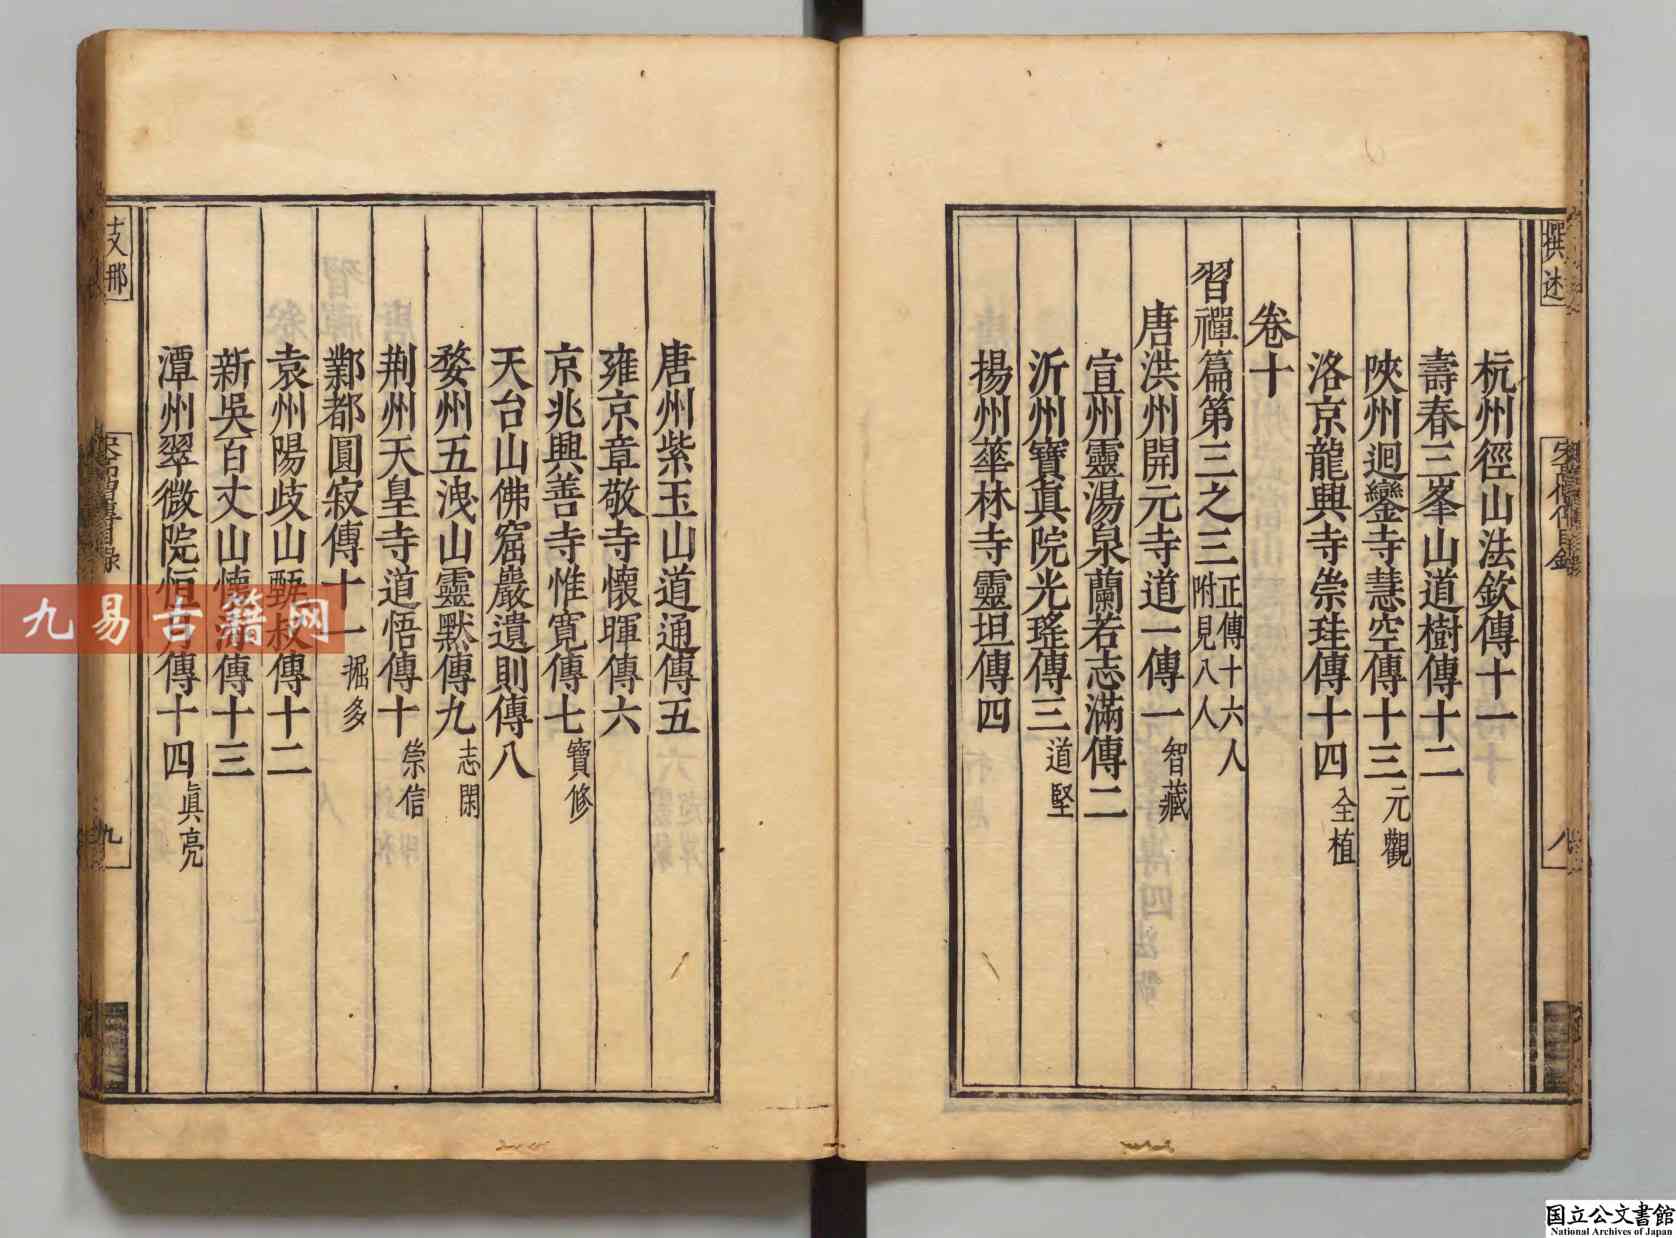 杭州徑山法欽傳十一
壽春三峯山道樹傳十二
陝州迴鑾寺慧空傳十三 元觀
洛京龍興寺崇珪傳十四 全植
卷十
習禪篇第三之三 正傳十六人 附見八人
唐洪州開元寺道一傳一 智藏
宣州靈湯泉蘭若志滿傳二
沂州寶真院光瑤傳三 道堅
揚州華林寺靈坦傳四
撰述
宋高僧傳目錄
八
唐州紫玉山道通傳五
雍京章敬寺懷暉傳六
京兆興善寺惟寬傳七 寶修
天台山佛窟巖遺則傳八
婺州五洩山靈默傳九 志閑
荆州天皇寺道悟傳十 崇信
鄴都圓寂傳十一 掘多
袁州陽歧山甄叔傳十二
新吳百丈山懷海傳十三
潭州翠微院恒月傳十四 真亮
支那
宋高僧傳目錄
九
九易古籍网
国立公文書館
National Archives of Japan